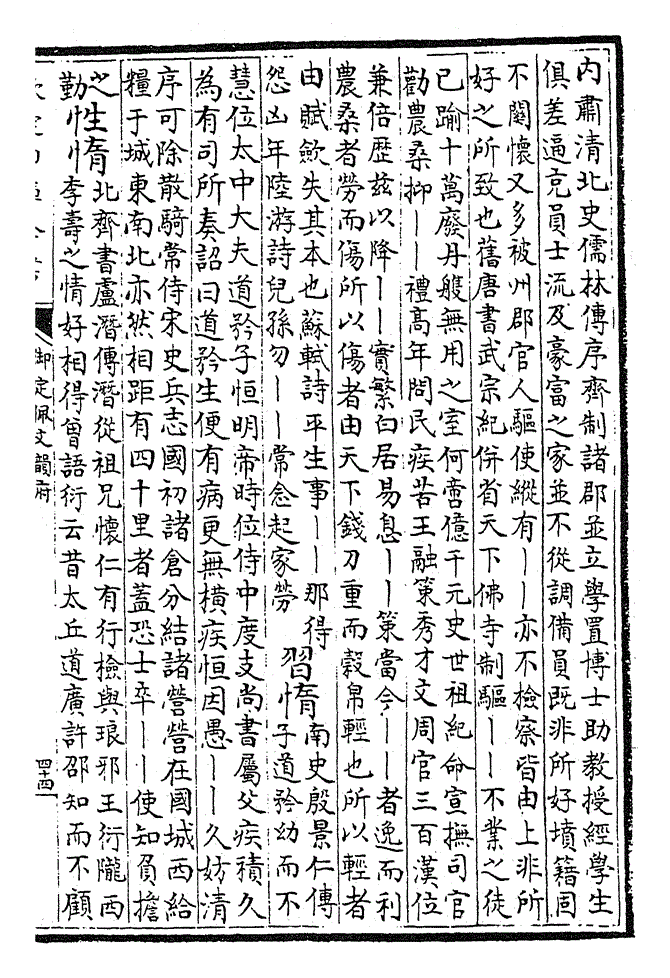 內肅清北史儒林傳序齊制諸郡並立學置博士助教授經學生
俱差逼充員士流及豪富之家並不從調備員既非所好墳籍固
不關懷又多被州郡官人驅使縱有丨丨亦不檢察皆由上非所
好之所致也舊唐書武宗紀併省天下佛寺制驅丨丨不業之徒
已踰十萬廢丹艧無用之室何啻億千元史世祖紀命宣撫司官
勸農桑抑丨丨禮高年問民疾苦王融策秀才文周官三百漢位
兼倍歷兹以降丨丨實繁白居易息丨丨策當今丨丨者逸而利
農桑者勞而傷所以傷者由天下錢刀重而穀帛輕也所以輕者
由賦斂失其本也蘇軾詩平生事丨丨那得
怨凶年陸游詩兒孫勿丨丨常念起家勞
習惰
南史殷景仁傳
子道矜幼而不
慧位太中大夫道矜子恒明帝時位侍中度支尚書屬父疾積久
為有司所奏詔曰道矜生便有病更無橫疾恒因愚丨丨久妨清
序可除散騎常侍宋史兵志國初諸倉分結諸營營在國城西給
糧于城東南北亦然相距有四十里者蓋恐士卒丨丨使知負擔
之
勤
性惰
北齊書盧潛傳潛從祖兄懷仁有行檢與琅邪王衍隴西
李壽之情好相得曾語衍云昔太丘道廣許邵知而不顧
御定佩文韻府
四十四